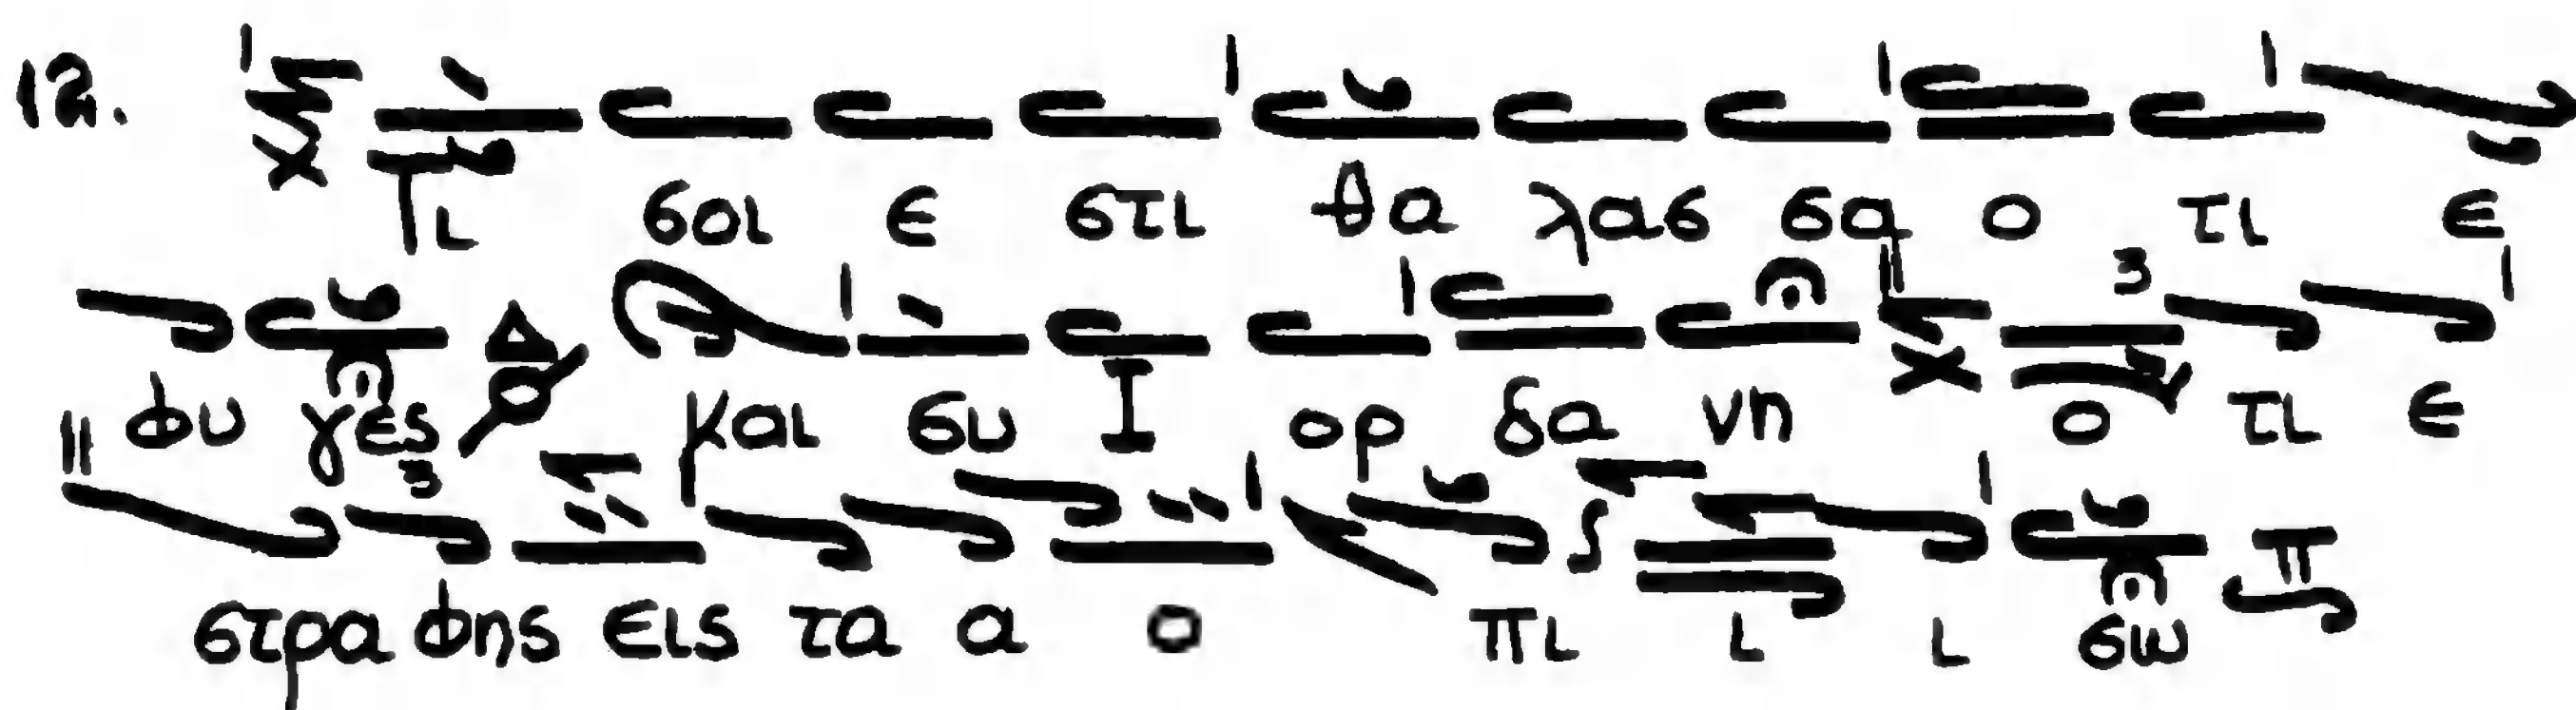 12. Τι σοι ε στι θα λασ σα ο τι ε
φυ γες Δ και συ Ι ορ δα νη ο τι ε
στρα φης εις τα α ο πι ι ι σω π